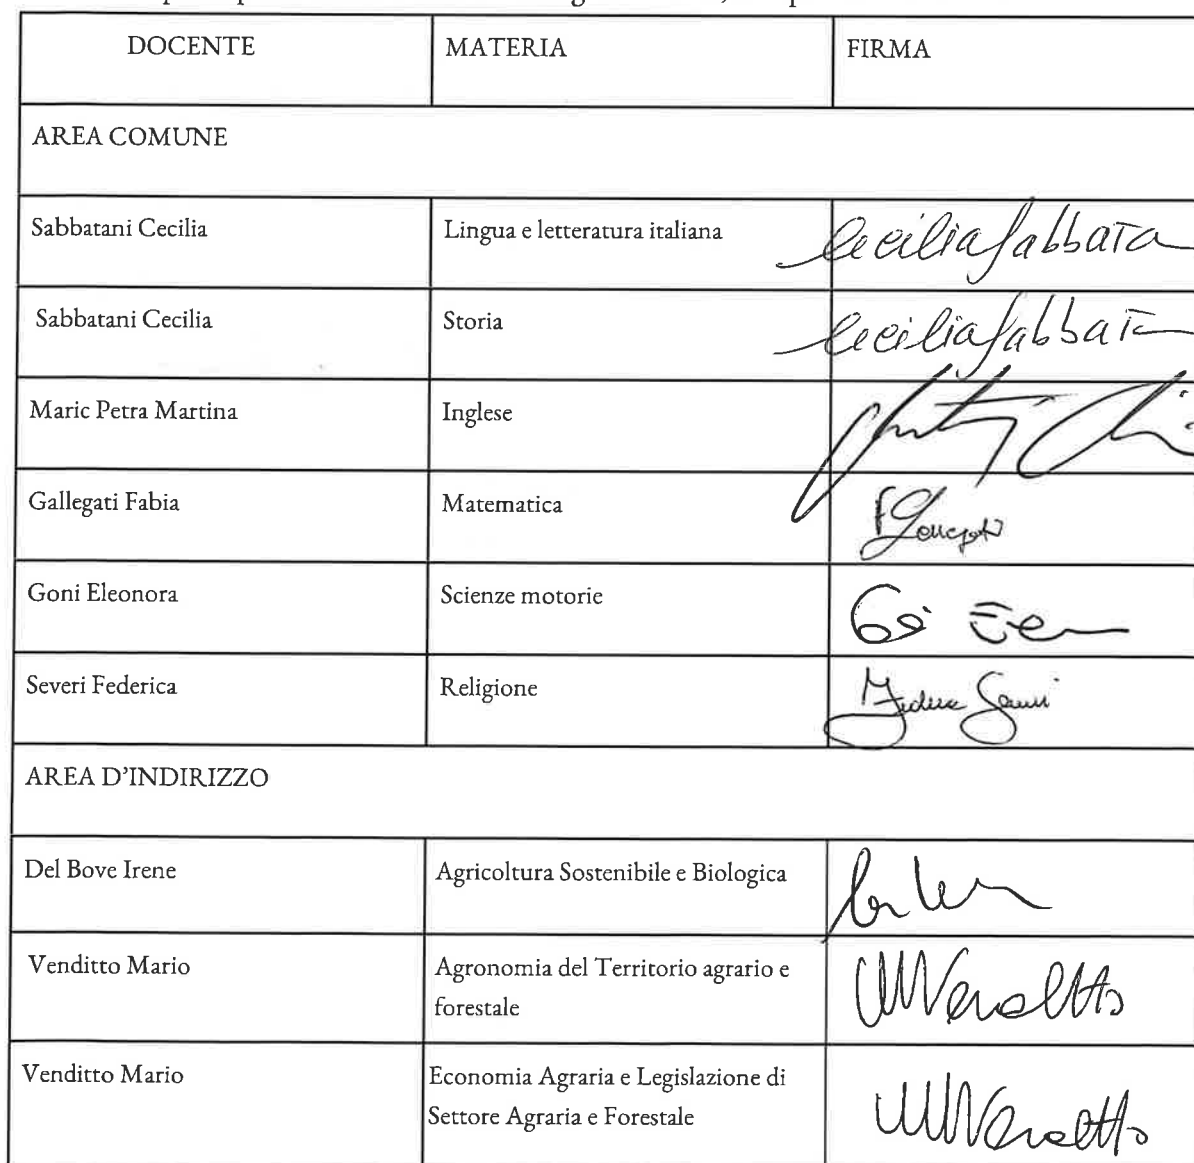 DOCENTE MATERIA FIRMA
AREA COMUNE
Sabbatani Cecilia Lingua e letteratura italiana Cecilia Sabbata
Sabbatani Cecilia Storia Cecilia Sabbata
Maric Petra Martina Inglese
Gallegati Fabia Matematica
Goni Eleonora Scienze motorie
Severi Federica Religione
AREA D'INDIRIZZO
Del Bove Irene Agricoltura Sostenibile e Biologica
Venditto Mario Agronomia del Territorio agrario e
forestale
Venditto Mario Economia Agraria e Legislazione di
Settore Agraria e Forestale